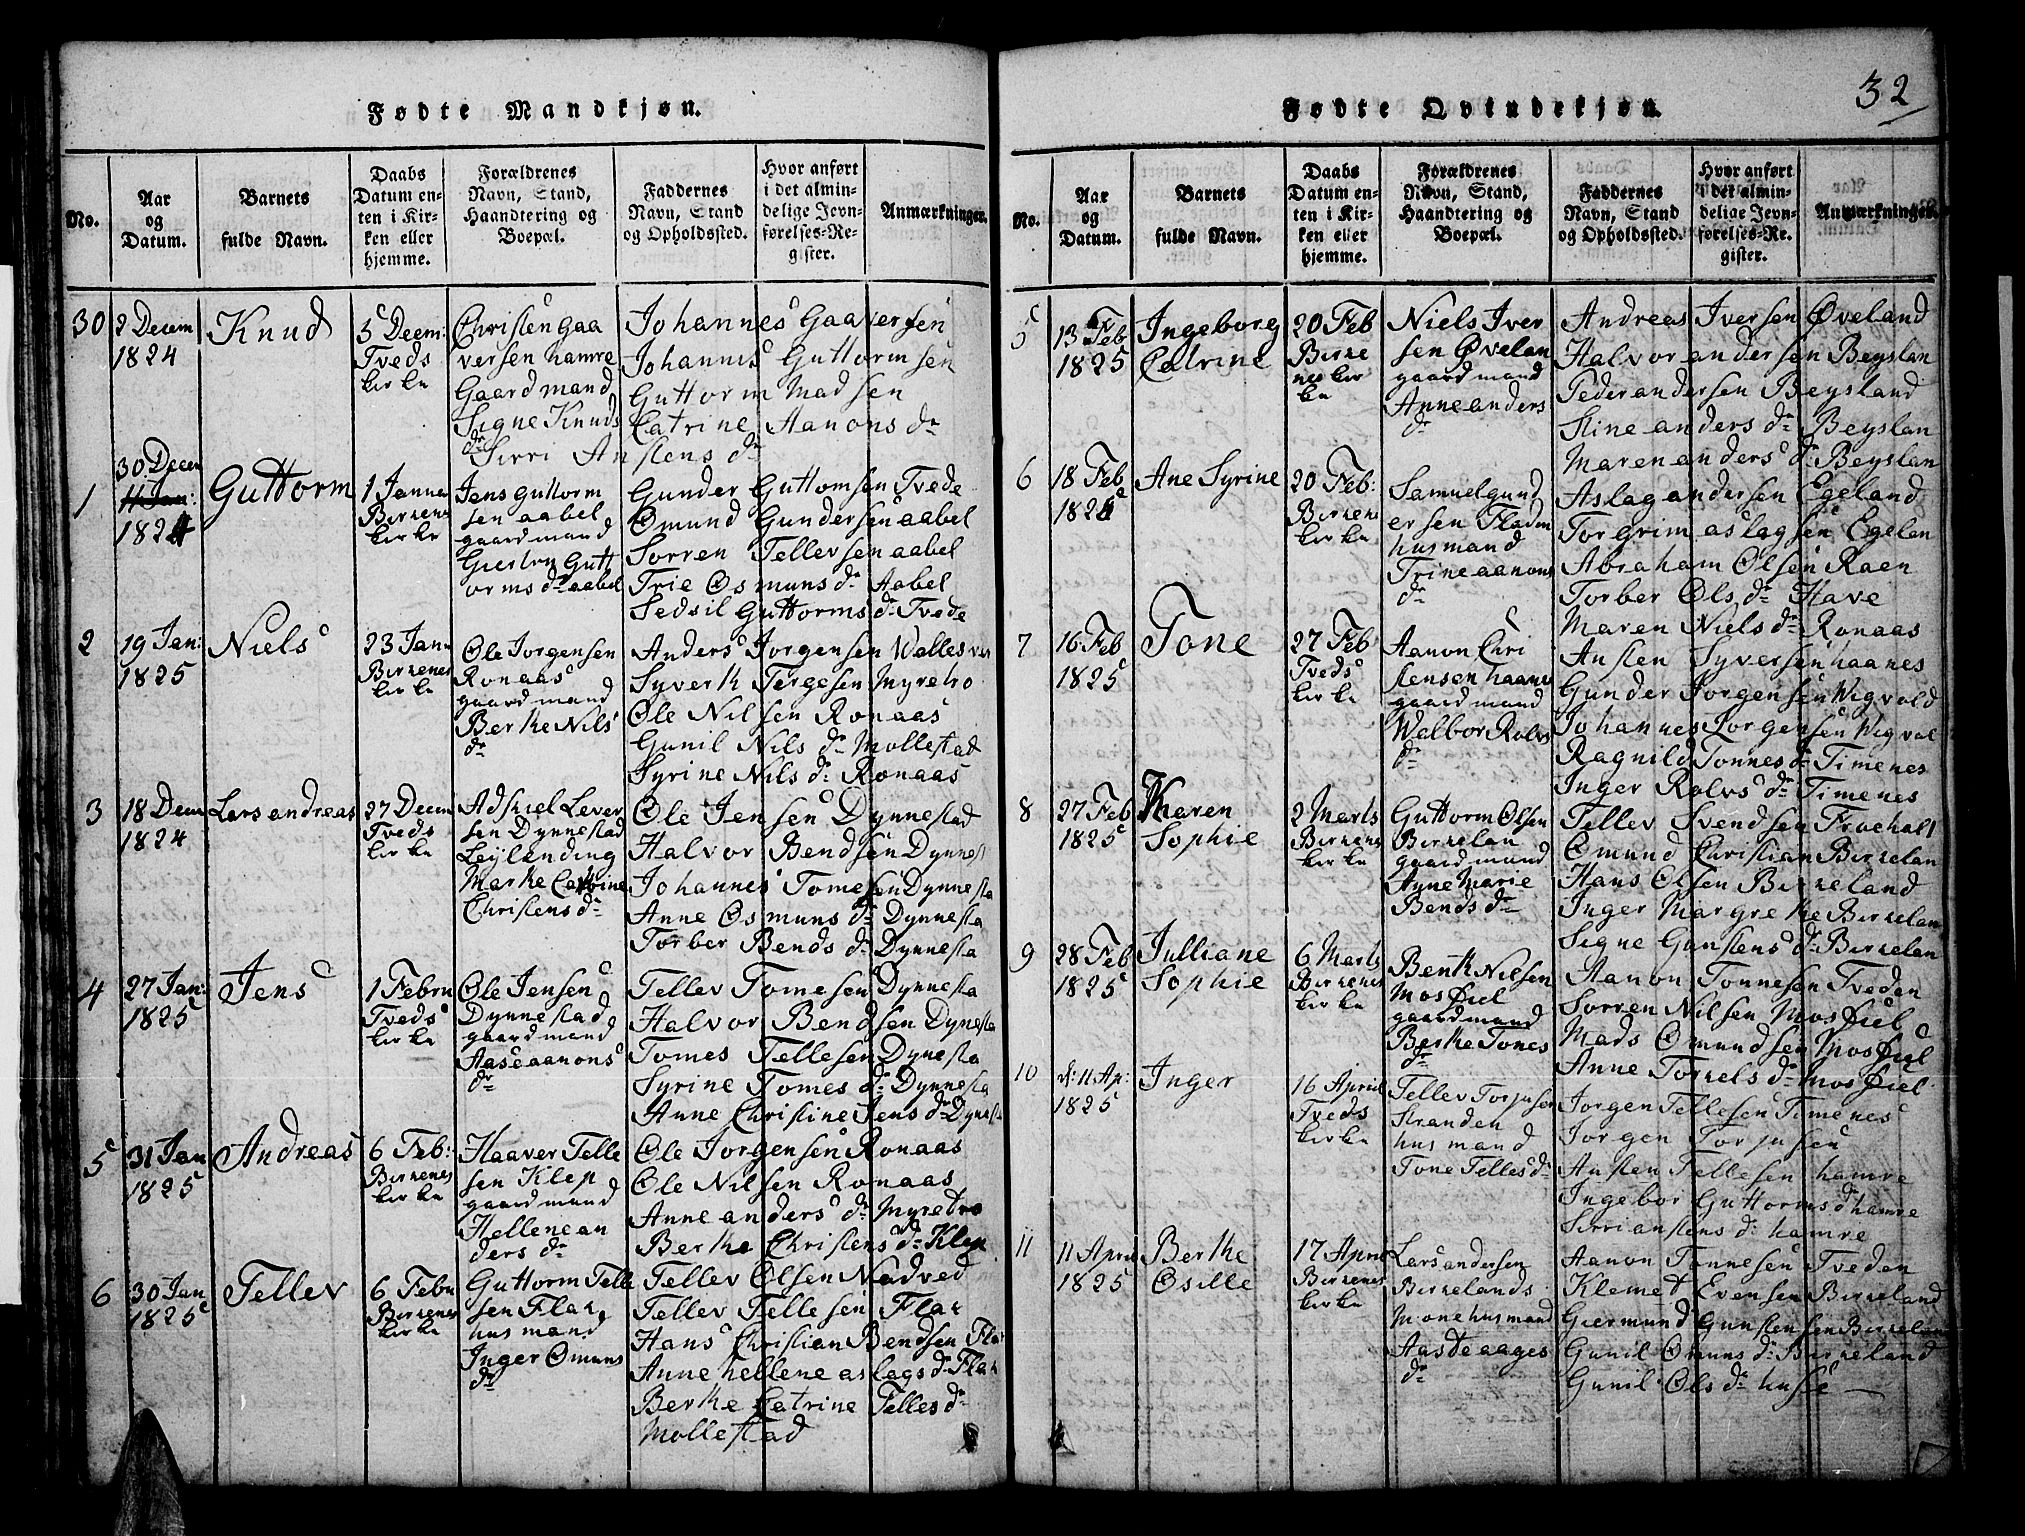 Fødte Mandkjøn.
No.
Aar
og
Datum.
Barnets
fulde Navn.
Daabs
Datum en-
ten i Kir-
ken eller
hjemme.
Forældrenes
Navn, Stand,
Haandtering og
Boepæl.
Faddernes
Navn, Stand
og Opholdssted.
Hvor anført
i det almin-
delige Jevn-
førelses-Re-
gister.
Anmærkninger.
30
2 Decem
1824
Knud
5 Deem:
Tveds
kirke
Christen Gaa
versen hamre
Gaardmand
Signe Knuds
dr
Johannes Gaaversen
Johannis Guttormsen
Guttorm Madsen
Catrine Aanons dr
Sirri Anstens dr
1
30 Deem
11 Jan:
1824
Guttorm
1 Janna
Birrenes
kirke
Jens Guttorm
sen aabel
gaardmand
Gutt
orms dr aabel
Gunder Guttomsen Tvede
Omund Gundersen aabel
Sorren Tellevsen aabel
Trie Osmuns dr Aabel
Sedsil Guttorms dr Tvede
2
19 Jan:
1825
Niels
23 Jan
Birrenes
kirke
Ole Jorgensen
Ronaas
gaardmand
Berthe Nils
dr
Anders Jorgensen
Syverth Tergesen Myrebo
Ole Nilsen Ronaas
Gunil Nils dr Mollestad
Syrine Nils dr Ronaas
3
18 Deem
1824
Lars andreas
27 Deem
Tveds
kirke
Adskiel Lever
sen Dynnestad
Leylending
Marthe Catrine
Christens dr
Ole Jensen Dynnestad
Halvor Bendsen Dynnest
Johannes Tomesen Dynnesta
Anne Osmuns dr Dynnesta
Torber Bends dr Dynnesta
4
27 Jan:
1825
Jens
1 Febru
Tveds
kirke
Ole Jensen
Dynnestad
gaardmand
Aase aanons
dr
Tellev Tomesen Dynnesta
Halvor Bendsen Dynesta
Tomes Tellesen Dynesta
Syrine Tomes dr Dynnesta
Anne Christine Jens dr Dynesta
5
31 Jan
1825
Andreas
6 Feb:
Birrenes
kirke
Haaver Telle
sen Klep
gaardmand
Hellene an
ders dr
Ole Jorgensen Ronaas
Ole Nilsen Ronaas
Anne anders dr Myrebo
Berthe Christens dr Klep
6
30 Jan
1825
Tellev
6 Febru
Birrenes
kirke
Guttorm Telle
sen Flak
husmand
Inger Omuns
dr
Tellev Olsen Nedved
Tellev Tellesen Flak
Hans Christian Bendsen Flak
Anne hellene aslags dr Flak
Berthe Catrine Telles dr
Mollestad
Fødte Qvindekjøn.
32
No.
Aar
og
Datum.
Barnets
fulde Navn.
Daabs
Datum en-
ten i Kir-
ken eller
hjemme.
Forældrenes
Navn, Stand,
Haandtering og
Boepæl.
Faddernes
Navn, Stand
og Opholdssted.
Hvor anført
i det almin-
delige Jevn-
førelses-Re-
gister.
Anmærkninger.
5
13 Feb
1825
Ingeborg
Catrine
20 Feb
Birre
nes kir
ke
Niels Iver
sen Øvelan
gaardmand
Anne anders
dr
Andreas Iversen Øveland
Halvor andersen Beyslan
Peder andersen Beysland
Stine anders dr Beyslan
Maren anders dr Beyslan
6
18 Feb
1825
Ane Syrine
20 Feb:
Birrenes
kirke
Samuel gund
ersen Fladen
husmand
Trine aanons
dr
Aslag andersen Egeland
Torgrim aslagsen Egelan
Abraham Olsen Raen
Torber Ols dr Have
Maren Niels dr Ronaas
7
16 Feb
1825
Tone
27 Feb
Tveds
kirke
Aanon Chri
stensen haanes
gaardmand
Walbor Rolvs
dr
Ansten Syversen haanes
Gunder Jorgensen Wigvold
Johannes Jorgensen Wigvol
Ragnild Tonnes dr Timenes
Inger Rolvs dr Timenes
8
27 Feb
1825
Karen
Sophie
2 Marts
Birrenes
kirke
Guttorm Olsen
Birkelan
gaardmand
Anne Marie
Bends dr
Tellev Svendsen Froehalt
Omund Christian Birkelan
Hans Olsen Birkeland
Inger Margrethe Birkelan
Signe Gunstens dr Birkelan
9
28 Feb
1825
Julliane
Sophie
6 Marts
Birrenes
kirke
Benth Nilsen
Mosfiel
gaardmand
Berthe Tones
dr
Aanon Tonnesen Tveden
Sorren Nilsen Mosfiel
Mads Omundsen Mosfiel
Anne Torkels dr Mosfiel
10
d: 11 Ap:
1825
Inger
16 April
Tveds
kirke
Tellev Torjusen
Stranden
husmand
Tone Telles dr
Jorgen Tellesen Timenes
Jorgen Torjusen
Ansten Tellesen hamre
Ingebor Guttorms dr hamre
Sirri anstens dr hamre
11
11 April
1825
Berthe
Osille
17 April
Birrenes
kirke
Lars andersen
Birkelands
Mone husmand
Aaste aages
dr
Aanon Tonnesen Tveden
Klemet Evensen Birkeland
Giermund Gunstensen Birkeland
Gunil Omuns dr Birkeland
Gunil Ols dr huse